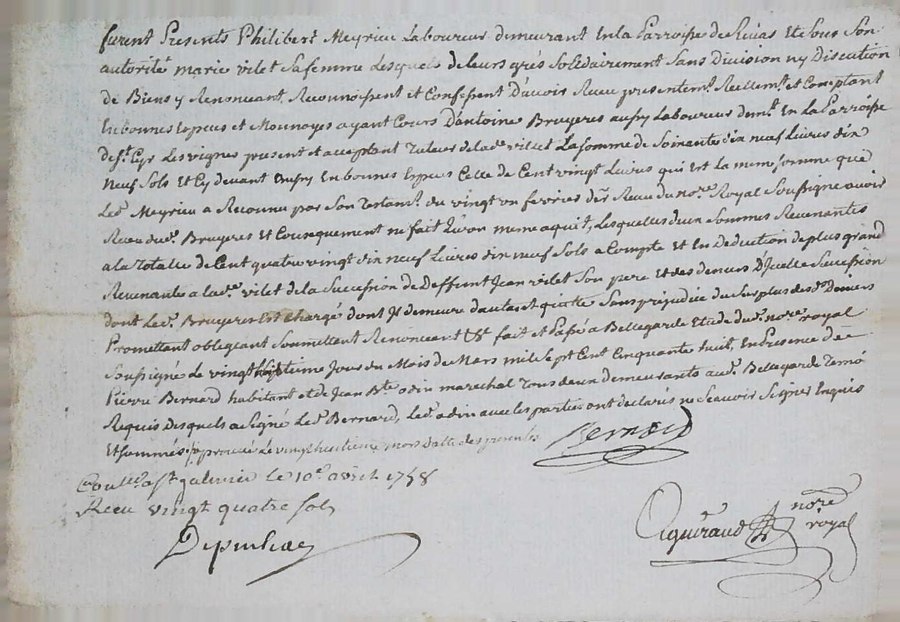 furent Presents Philibert Meyrieu Laboureur demeurant En la Parroisse de Rivas Et de Sous Son
autorité marie vilet Sa femme Lesquels de leurs grés Solidairement Sans Division ny Discution
de Biens y Renonceant, Reconnoissent et Confessent D'avoir Receu presentemt. Reellemt. et Comptant
En bonnes Especes et Monnoyes ayant Cours D'antoine Bruyeres aussy Laboureur demt. En La Parroisse
de st. Cyr Les vignes present et acceptant La Somme de Soixante dix neuf Livres dix
neuf Sols Et Cy devant Aussy En bonnes Especes Celle de Cent vingt Livres qui est La meme somme que
Led. Meyrieu a Reconnu par Son Testamt. du vingt un fevrier der. Receu du nore. Royal Soussigné avoir
Receu dud. Bruyeres Et Consequemment ne fait qu'un meme aquit, Lesquelles deux Sommes Revenantes
a la Totalle de Cent quatre vingt dix neuf Livres dix neuf Sols a Compte et En Deduction de plus grand
Revenantes a lade. vilet de la Succession de Deffunt Jean vilet Son pere Et des deniers D'Jcelle Succession
dont Led. Bruyeres Est Chargé dont Jl demeure d'autant quitte Sans prejudice du Surplus desd. Deniers
Promettant obligeant Soumettant Renonceant &c fait et Passé a Bellegarde Etude dud. nore. royal
Soussigné Le vingt huitieme Jour du Mois de Mars mil Sept Cent Cinquante huit, En Presence de
Pierre Bernard habitant et de Jean Bte. odin marechal Tous deux demeurants aud. Bellegarde Temo.
Requis desquels a Signé Led. Bernard, Led. odin avec les parties ont declarés ne Scavoir Signer Enquis
Et Sommés approuvé Le vingt huitieme mots datte des presentes
Bernard
Conllé. a st. galmier Le 10e. avril 1758
Receu vingt quatre Sols
nore. royal